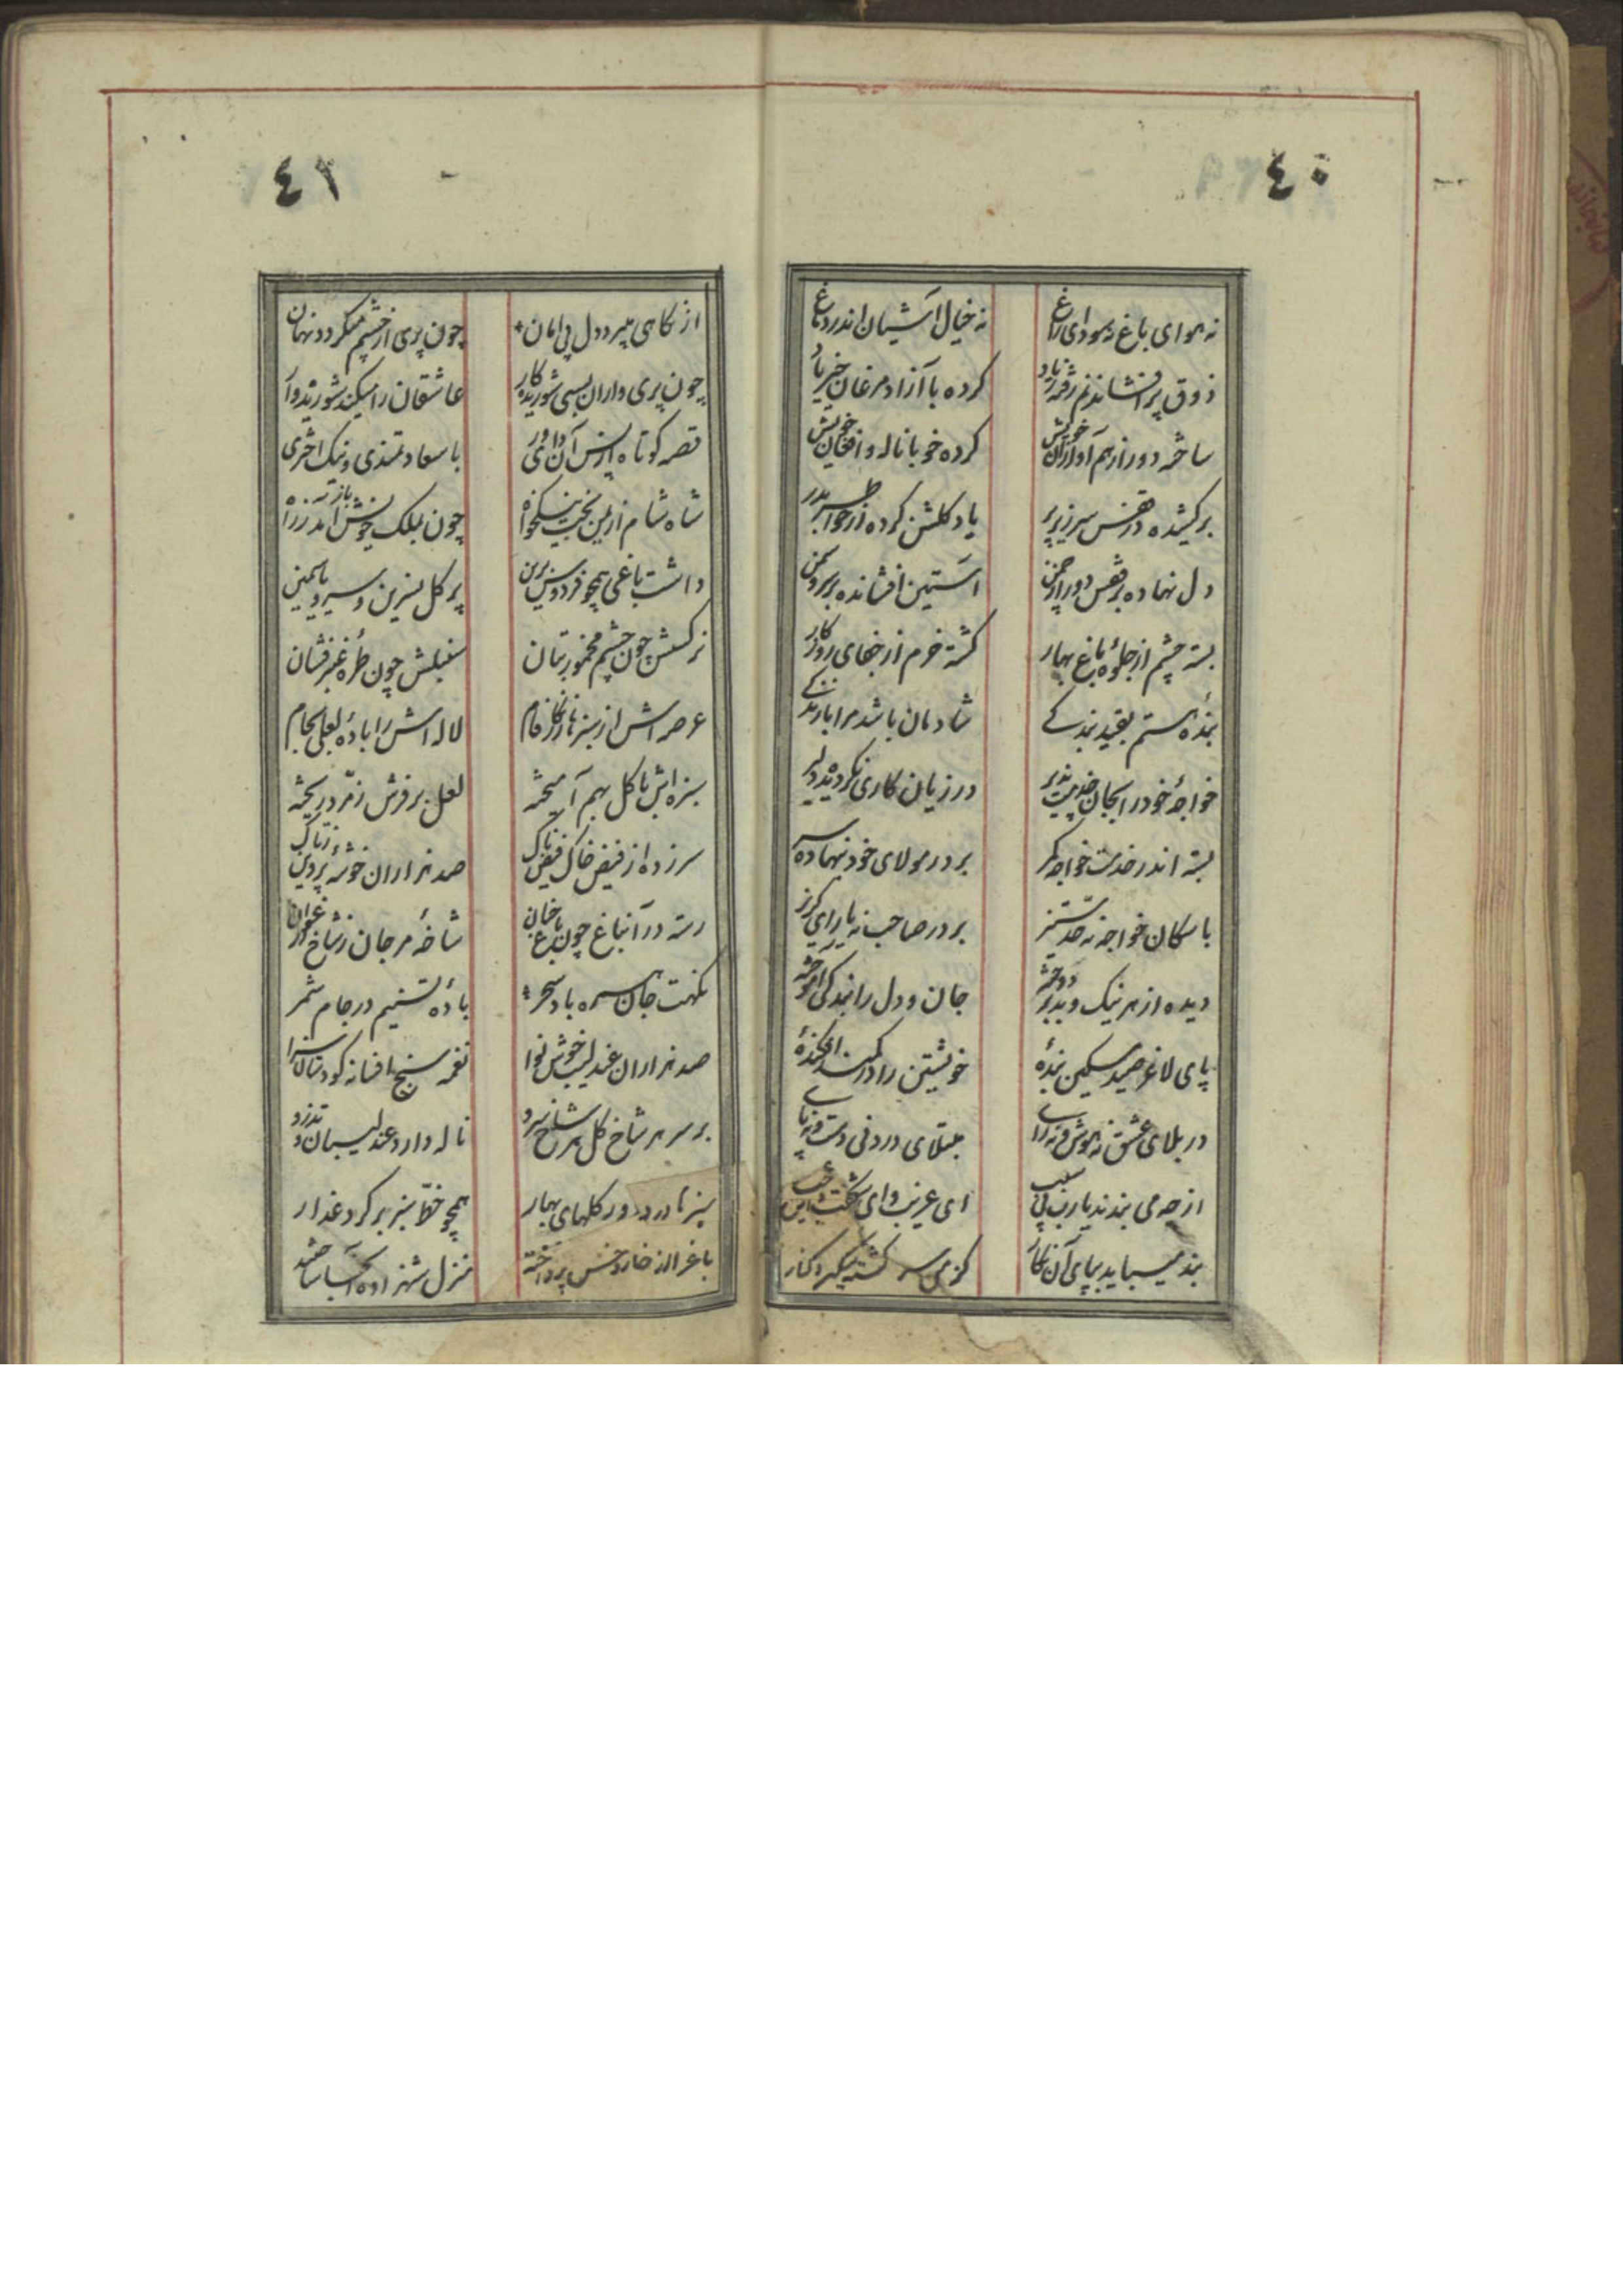 ٤٠
نه هوای باغ نه سودای راغ
نه خیال آشیان اندر دماغ
ذوق پر افشاندنم رفته ز یاد
کرده با آزاد مرغان خیر باد
ساخته دور از هم آوازان خویش
کرده خو با ناله و افغان خویش
بر کشیده در قفس سر زیر پر
یاد گلشن کرده از خاطر بدر
دل نهاده بر قفس دور از چمن
آستین افشانده بر سرو سمن
بسته چشم از جلوه باغ بهار
گشته خرم از خهای روزگار
بندهٔ هستم بقید بندگے
شادمان باشد مرا با بندگے
خواجهٔ خود را بجان خدمت پذیر
در زیان کاری نگردیده دلیر
بسته اندر خدمت خواجه کمر
بر در مولای خود بنهاده سر
با سکان خواجه نه حد ستیز
بر در صاحب نه یارای گریز
دیده از هر نیک و بد بر دوخته
جان و دل را بندگی آموخته
پای لاغر صید مسکین بندهٔ
خویشتن را در کمند افکندهٔ
در بلای عشق نه هوش و نه رای
مبتلای درد نی دست و نه پای
از چه می بندند یارب بی سبب
ای عزیب وای شکفت وای عجب
بند میباید بپای آن نگار
کز بر سر گشته میگیرد کنار
٤١
از نگاهی میبرد دل بی امان
چون پری از چشم میگردد نهان
چون پری داران بسی شوریده کار
عاشقان را میکند شوریده وار
قصه کوتاه از پس آن داوری
با سعادتمندی و نیک اختری
شاه شام از یمن بخت نیکخواه
چون بملک خویش باز آمد ز راه
داشت باغی همچو فردوس برین
پر گل نسرین و سرو یاسمین
نرگسش چون چشم مخمور بتان
سنبلش چون طره عنبر فشان
عرصه اش از سبزها زنگار فام
لاله اش را بادهٔ لعلی بجام
سبزه اش با گل بهم آمیخته
لعل بر فرش زمرد ریخته
سر زده از فیض خاک فیض ناک
صد هزاران خوشهٔ پروین ز تاک
رسته در آن باغ چون باغ جنان
شاخهٔ مرجان ز شاخ ارغوان
نکهت جان همره باد سحر
بادهٔ تسنیم در جام ثمر
صد هزاران عندلیب خوش نوا
نغمه سنج افسانه گو دستان سرا
بر سر هر شاخ گل هر شاخ سرو
ناله دارد عندلیبان و تذرو
سبزها در دور گلهای بهار
همچو خطّ سبز بر گرد عذار
باغ را از خار و خس پرداخته
منزل شهزاده آنجا ساختند